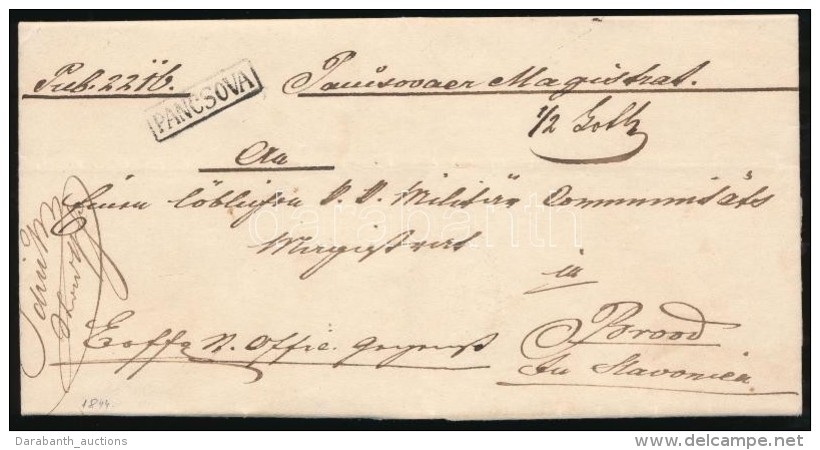 Pub. 22
PANCSOVA
Pancsovaer Magistrat.
1/2 Loth
An
Einen löblichen K. K. Militär Communitäts
Magistrat
in
Brood
In Slavonien
Ex Offo
1844.
darabanth
Darabanth_auctions
delcampe.net